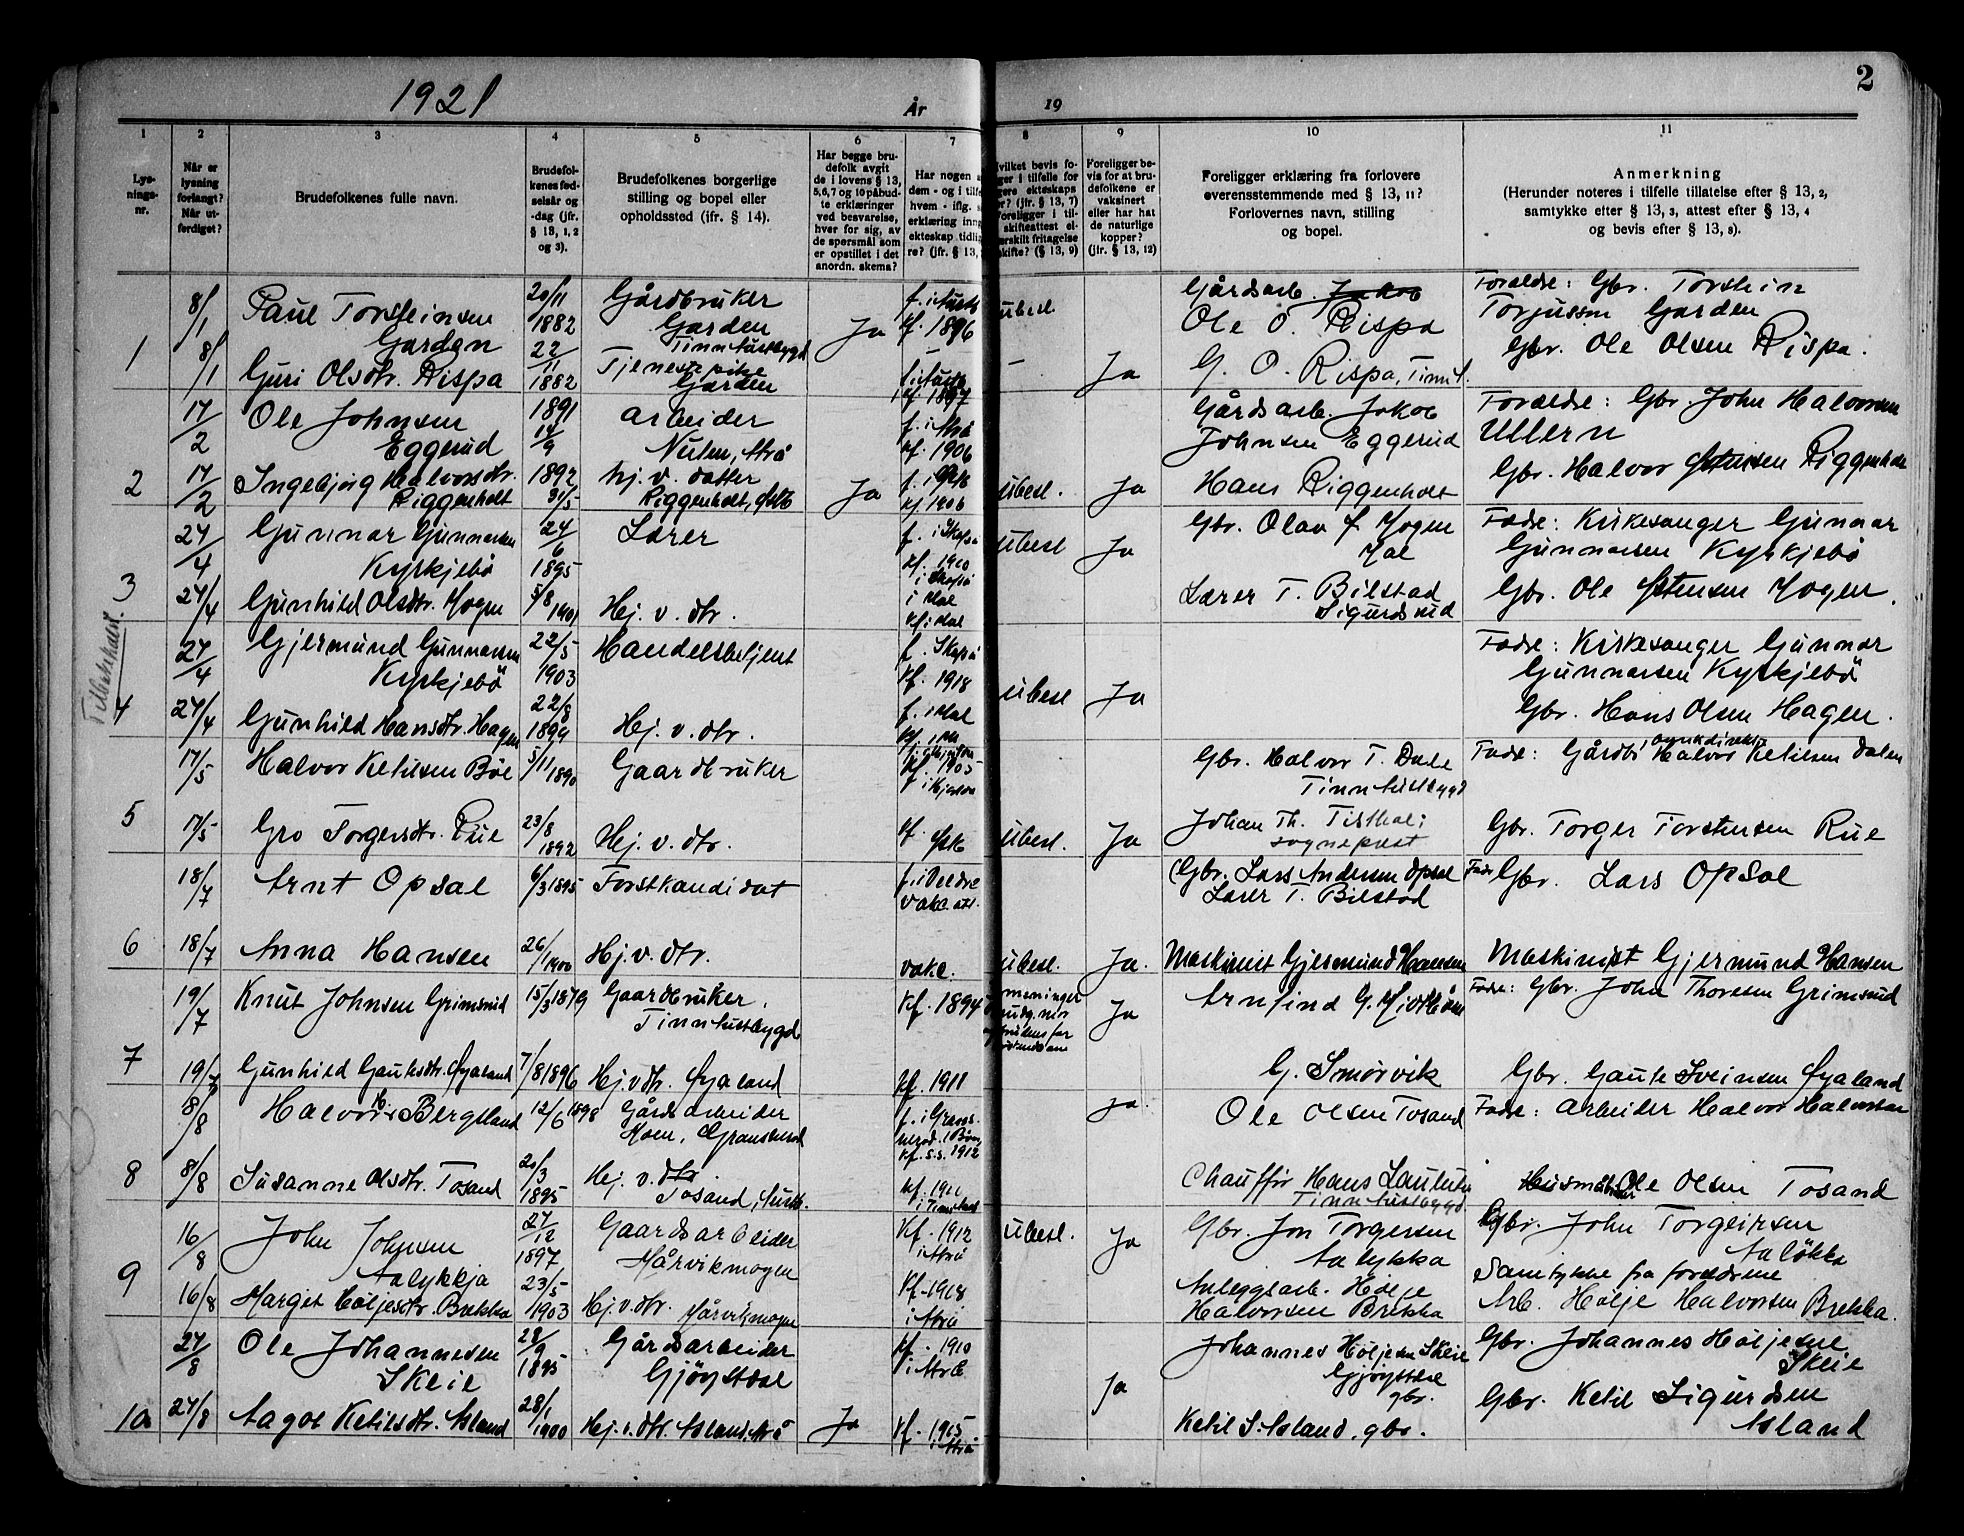 1921
År
19
2
1
2
3
4
5
6
7
8
9
10
11
Lys-
nings-
nr.
Når er
lysning
forlangt?
Når ut-
ferdiget?
Brudefolkenes fulle navn.
Brudefol-
kenes fød-
selsår og
-dag (jfr.
§ 13, 1, 2
og 3).
Brudefolkenes borgerlige
stilling og bopel eller
opholdssted (jfr. § 14).
Har begge bru-
defolk avgit
de i lovens § 13,
5, 6, 7 og 10 påbud-
te erklæringer
ved besvarelse,
hver for sig, av
de spørsmål som
er opstillet i det
anordn. skema?
Har nogen a
dem - og i tilfe
hvem - iflg. s
erklæring inng
ekteskap tidlig
re? (jfr. § 13,
vilket bevis fo-
ger i tilfelle for
gere ekteskaps
or? (jfr. § 13, 7)
Foreligger i til-
skifteattest el-
ærskilt fritagelse
skifte? (§ 13, 9)
Foreligger be-
vis for at bru-
defolkene er
vaksinert
eller har hat
de naturlige
kopper?
(jfr. § 13, 12)
Foreligger erklæring fra forlovere
overensstemmende med § 13, 11?
Forlovernes navn, stilling
og bopel.
Anmerkning
(Herunder noteres i tilfelle tillatelse efter § 13, 2,
samtykke efter § 13, 3, attest efter § 13, 4
og bevis efter § 13, 8).
1
8/1 Paul Torsteinsen 20/11 Gårdbruker
Garden 1882 Garden Ja kf. 1896 ubesl.
Tinn Austbygd
8/1 Guri Olsdtr. Rispa 22/11 1882 Tjenestepike
Garden kf. 1897 - Ja
Gårdsarb. Jakob
Ole O. Rispa
G. O. Rispa, Tinn A.
Forældre: Gbr. Torstein
Torjussen Garden
Gbr. Ole Olsen Rispa.
2
17/2 Ole Johnsen 1891 arbeider f. i Atrå
Eggerud 14/9 Nuten, Atrå kf. 1906
17/2 Ingebjørg Halvorsdtr. 1892 hj. v. datter
Riggenholt 31/5 Riggenholt, Ja kf 1906 ubesl. Ja
Gårdsarb. Jakob
Johnsen Eggerud
Hans Riggenholt
Forældre: Gbr. John Halvorsen
Ullern
Gbr. Halvor Riggenholt
3
27/4 Gunnar Gunnarsen 24/6 Lærer
Kyrkjebö 1895 kf. 1910 ubesl Ja
27/4 Gunhild Olsdtr. Mogen 5/8 1901 Hej. v. dtr. i Mæl
kf i Mæl
Gbr. Olav J. Mogen
Mæl
Lærer T. Bilstad
Sigurdsrud
Fade: Kirkesanger Gunnar
Gunnarsen Kyrkjebö
Gbr. Ole Mogen.
Tilbakekaldt.
4
27/4 Gjermund Gunnarsen 22/5 Handelsbetjent
Kyrkjebö 1903 kf. 1918 ubesl Ja
27/4 Gunhild Hansdtr. Hagen 22/8 1899 Hej. v. dtr. f. i Mæl
Fade: Kirkesanger Gunnar
Gunnarsen Kyrkjebö
Gbr. Hans Olsen Hagen.
5
17/5 Halvor Ketilsen Bøe 5/11 1890 Gaardbruker kf. 1905
17/5 Gro Torgersdtr. Rue 23/8 1892 Hej. v. dtr. kf. ubesl. Ja
Gbr. Halvor T. Dale
Tinn Austbygd
Johan Th. Tisthal;
sogneprest
Fade: Gårdbr Halvor Ketilsen Dalen
Gbr. Torger Torsteinsen Rue
6
18/7 Arnt Opsal 6/3 1895 Forstkandidat
f. i Veldre
vakc. att.
18/7 Anna Hansen 26/1 1900 Hj. v. dtr. vakc. ubesl. Ja.
Gbr. Lars Andersen Opsal
Lærer T. Bilstad
Maskinist Gjermund Hansen
Fade Gbr. Lars Opsal
Maskinist Gjermund Hansen
7
19/7 Knut Johnsen Grimsrud 15/3 1879 Gaardbruker. kf. 1894 Ja
Tinn Austbygd
19/7 Gunhild Gautesdtr. Øyaland 7/8 1896 Hj. v dtr. Øyaland kf. 1911
Arnfind G. Midtbøen
G. Smørvik
Fade: Gbr. John Thoresen Grimsrud
Gbr. Gaute Sveinsen Øyaland
8
8/8 Halvor H. Bergsland 12/6 1898 Gårdsarbeider ja.
Moen, Gransherad
kf. s.s. 1912
8/8 Susanne Olsdtr. Tosand 20/3 1895 Hej. v. dtr
Tosand, Austb. kf. 1910
Ole Olsen Tosand
Chauffør Hans
Tinn Austbygd.
Fade: arbeider Halvor Halvorsen
Husmand Ole Olsen Tosand
9
16/8 John Johnsen 27/12 Gaardsarbeider kf. 1912 ubesl. Ja
Aalykkja 1897 Hårvikmogen i Atrå
16/8 Marget Høljesdtr. Brekka 23/5 1903 Hj. v. dtr. Hårvikmogen kf. 1918
i Atrå
Gbr. Jon Torgersen
Aalykka
Anleggsarb. Hølje
Halvorsen Brekka
Gbr. John Torgeirsen
Aaløkka
Samtykke fra forældrene
Arb. Hølje Halvorsen Brekka.
10
27/8 Ole Johannesen 28/9 Gårdsarbeider kf. 1910
Skeie 1895 Gjøystdal i Atrå Ja
27/8 Aagot Ketilsdtr. Åsland 28/1 1900 Hej. v. dtr. Åsland, Atrå Ja kf. 1915
i Atrå
Johannes Høljesen Skeie
Gjøystdal
gbr.
Ketil S. Åsland, gbr.
Gbr. Johannes Høljesen
Skeie
Gbr. Ketil Sigurdsen
Åsland